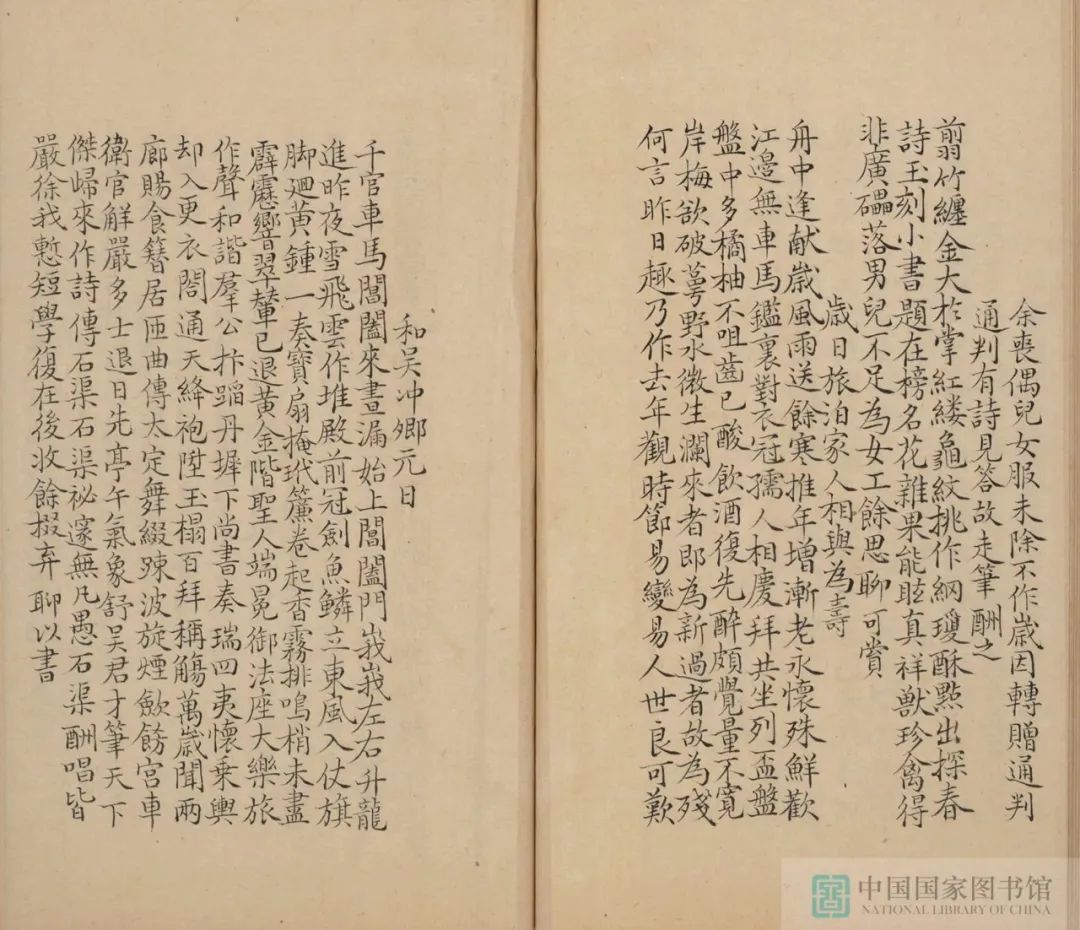 余喪偶兒女服未除不作歲因轉贈通判
通判有詩見答故走筆酬之
翦竹纏金大於掌紅縷龜紋挑作綱瓊酥點出探春
詩玉刻小書題在榜名花雜果能眩真祥獸珍禽得
非廣礧落男兒不足為女工餘思聊可賞
歲日旅泊家人相與為壽
舟中逢献歲風雨送餘寒推年增漸老永懷殊鮮歡
江邊無車馬鑑裏對衣冠孺人相慶拜共坐列盃盤
盤中多橘柚不咀齒已酸飲酒復先醉頗覺量不寬
岸梅欲破萼野水微生瀾來者即為新過者故為殘
何言昨日趣乃作去年觀時節易變易人世良可歎
和吴冲卿元日
千官車馬閶闔來晝漏始上閶闔門峩峩左右升龍
進昨夜雪飛雲作堆殿前冠劍魚鱗立東風入仗旗
脚廻黄鍾一奏寶扇掩玳簾卷起香霧排鳴梢未盡
霹靂響翠輦已退黄金階聖人端冕御法座大樂旅
作聲和諧羣公抃蹈丹墀下尚書奏瑞四夷懷乗輿
却入更衣閤通天絳袍陞玉榻百拜稱觴萬歲聞兩
廊賜食簪居匝曲傳太定舞綴踈波旋煙歛飭宮車
衛官解嚴多士退日先亭午氣象舒吴君才筆天下
傑歸來作詩傳石渠石渠祕邃無凡愚石渠酬唱皆
嚴徐我慙短學復在後收餘掇弃聊以書
中国国家图书馆
NATIONAL LIBRARY OF CHINA